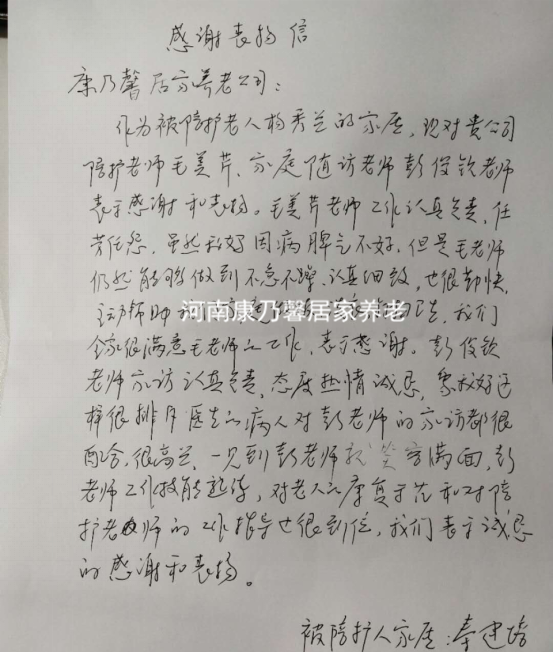 感谢表扬信
康乃馨居家养老公司：
作为被陪护老人杨秀兰的家属，现对贵公司
陪护老师毛美芹、家庭随访老师彭俊钦老师
表示感谢和表扬。毛美芹老师工作认真负责，任
劳任怨，虽然我好因病脾气不好，但是毛老师
仍然能够做到不急不躁，认真细致，也很勤快，
主动帮助
河南康乃馨居家养老
我们
全家很满意毛老师的工作，表示感谢。彭俊钦
老师家访认真负责，态度热情诚恳，象我好这
样很排斥医生的病人对彭老师的家访都很
配合，很高兴，一见到彭老师就笑容满面，彭
老师工作技能熟练，对老人的康复示范和对陪
护老师的工作指导也很到位，我们表示诚恳
的感谢和表扬。
被陪护人家属：秦建